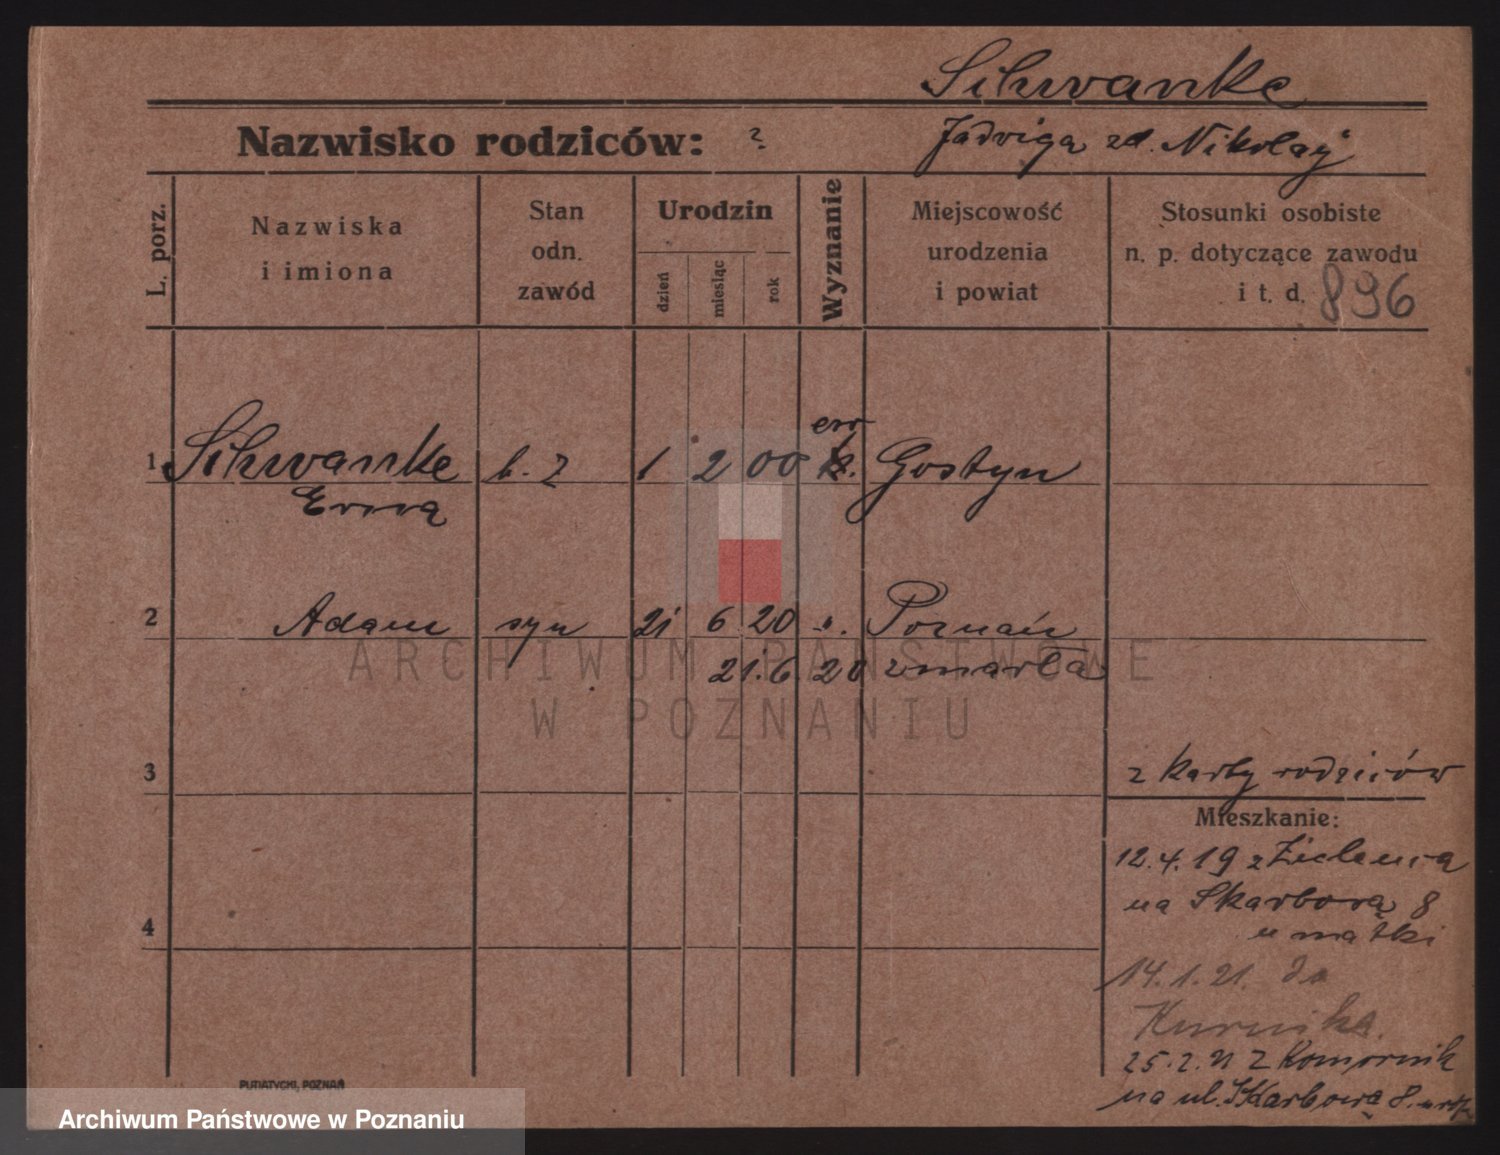 Schwanke
Nazwisko rodziców: ?
Jadwiga zd. Nikolay
L. porz.
Nazwiska
i imiona
Stan
odn.
zawód
Urodzin
dzień
miesiąc
rok
Wyznanie
Miejscowość
urodzenia
i powiat
Stosunki osobiste
n. p. dotyczące zawodu
i t. d. 896
ew
1 Schwanke 1 2 00 k. Gostyn
Erna
2 Adam syn 21 6 20 ". Poznań
21.6.20 zmarła
3 z karty rodziców
Mieszkanie:
12.4.19 z Zielenią
na Skarbową 8
u matki
4
14.1.21. do
Kurnika.
25.2.21 z Komornik
na ul. Skarbową 8.
PUTIATYCKI, POZNAŃ
ARCHIWUM PAŃSTWOWE
W POZNANIU
Archiwum Państwowe w Poznaniu